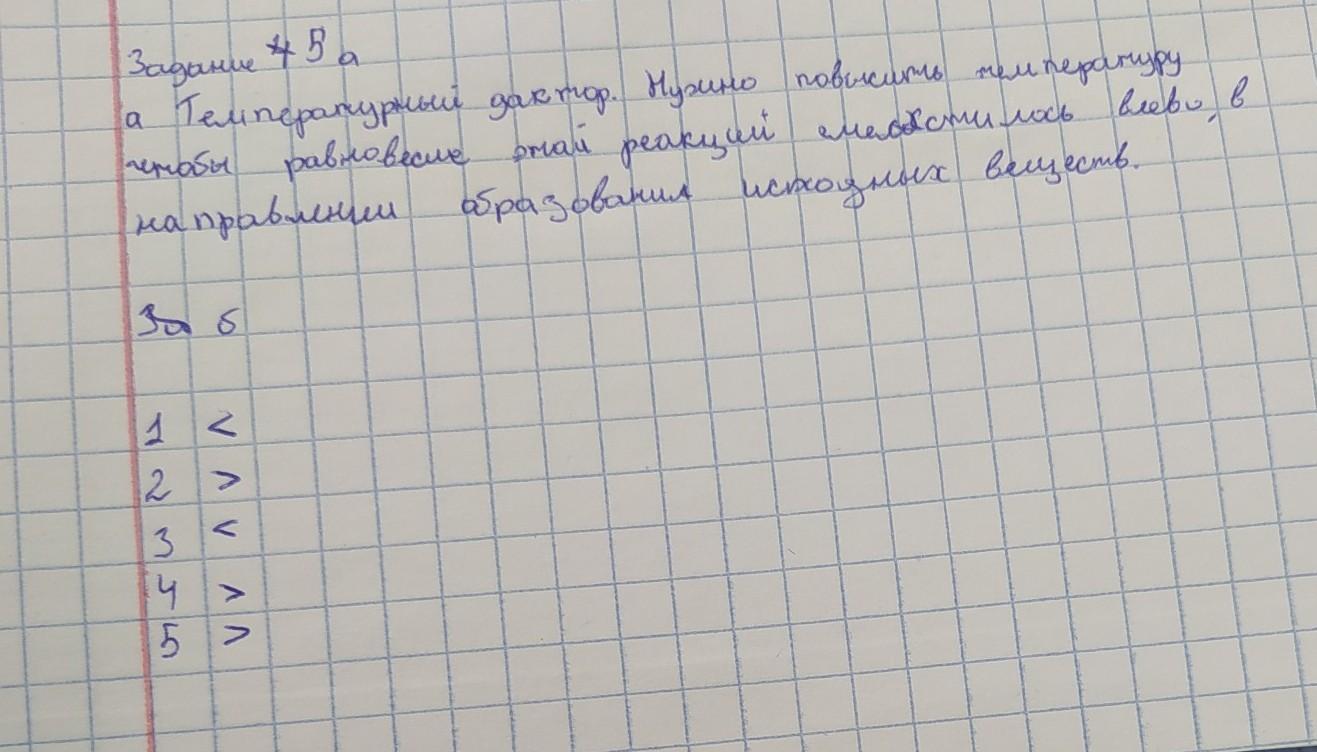 Задание 5 а
а Температурный фактор. Нужно повысить температуру
чтобы равновесие этой реакций сместилось влево, в
направлении образования исходных веществ.
За б
1 <
2 >
3 <
4 >
5 >